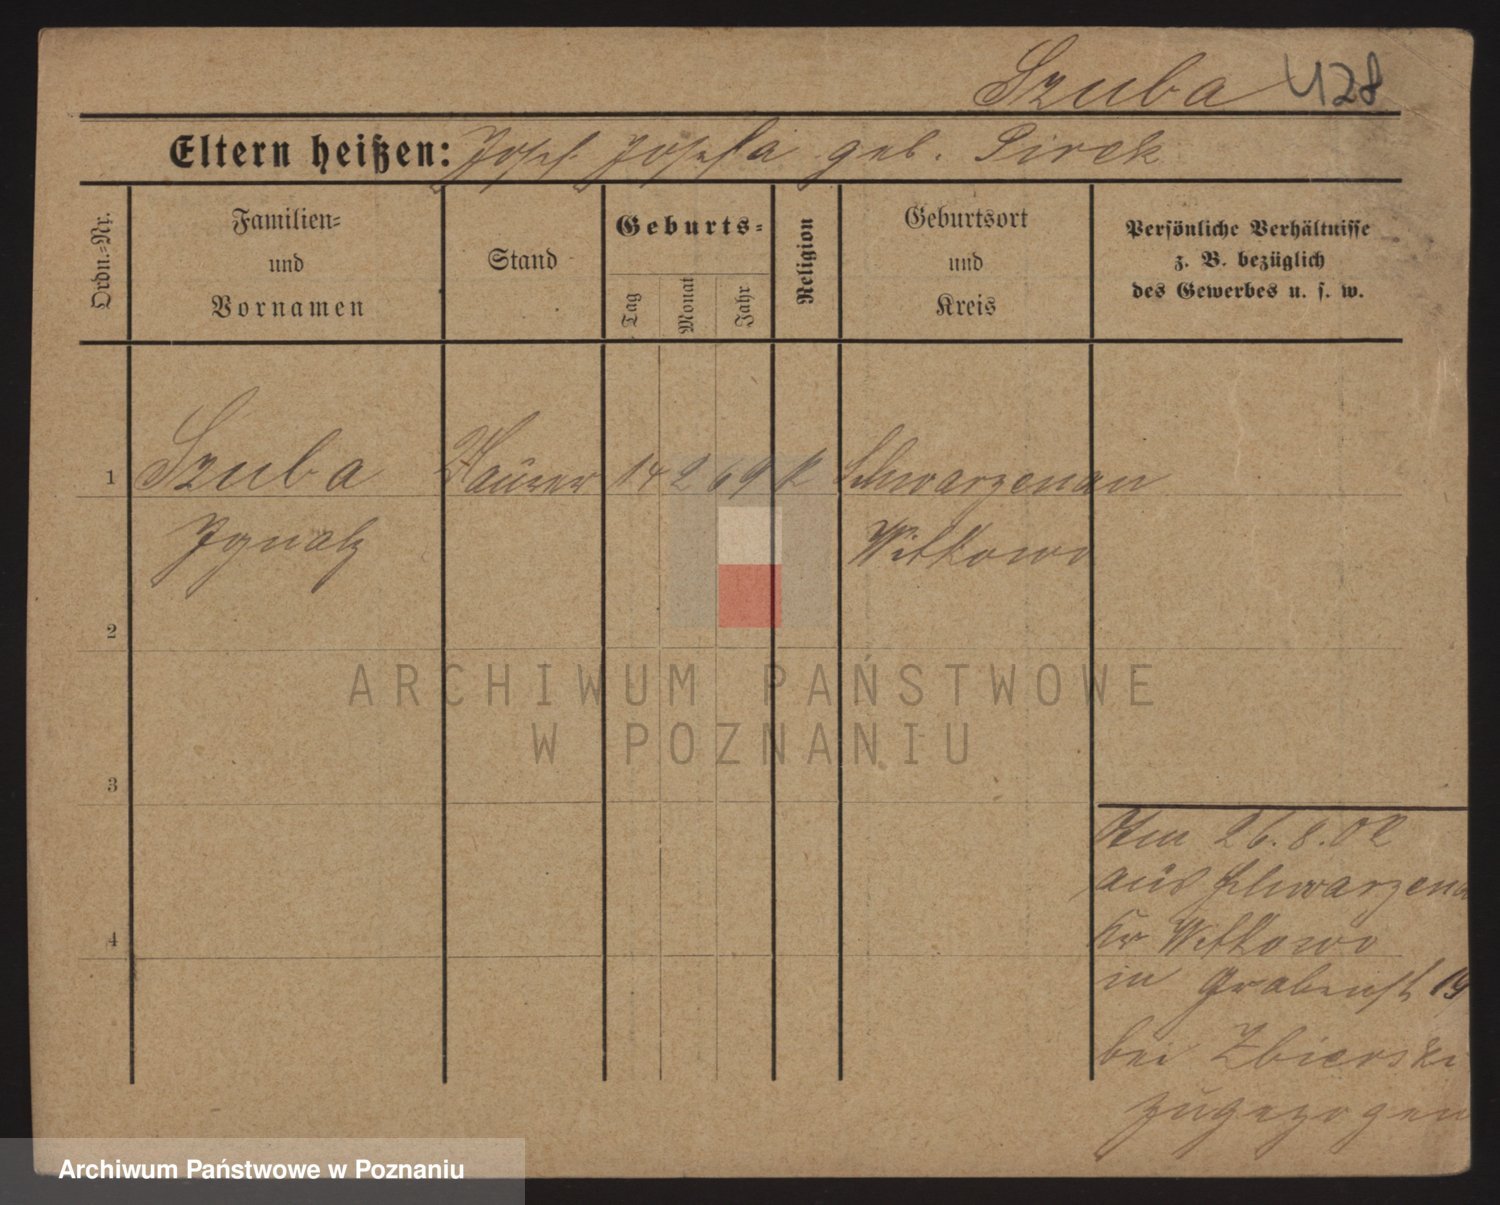 Szuba 428
Eltern heißen: Josef Josefa geb. Pirek
Ordn.=Nr.
Familien=
und
Vornamen
Stand
Geburts=
Tag
Monat
Jahr
Religion
Geburtsort
und
Kreis
Persönliche Verhältnisse
z. B. bezüglich
des Gewerbes u. s. w.
1 Szuba Maurer 14 2 69 k Schwarzenau
Ignatz Witkowo
2
ARCHIWUM PAŃSTWOWE
W POZNANIU
3
Am 26.8.02
aus Schwarzenau
Kr Witkowo
4
in Grabenst 19
bei Zbierski
zugezogen
Archiwum Państwowe w Poznaniu